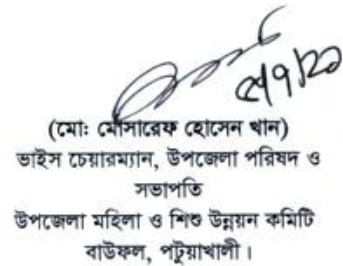 (মোঃ মোসারেফ হোসেন খান)
ভাইস চেয়ারম্যান, উপজেলা পরিষদ ও
সভাপতি
উপজেলা মহিলা ও শিশু উন্নয়ন কমিটি
বাউফল, পটুয়াখালী।